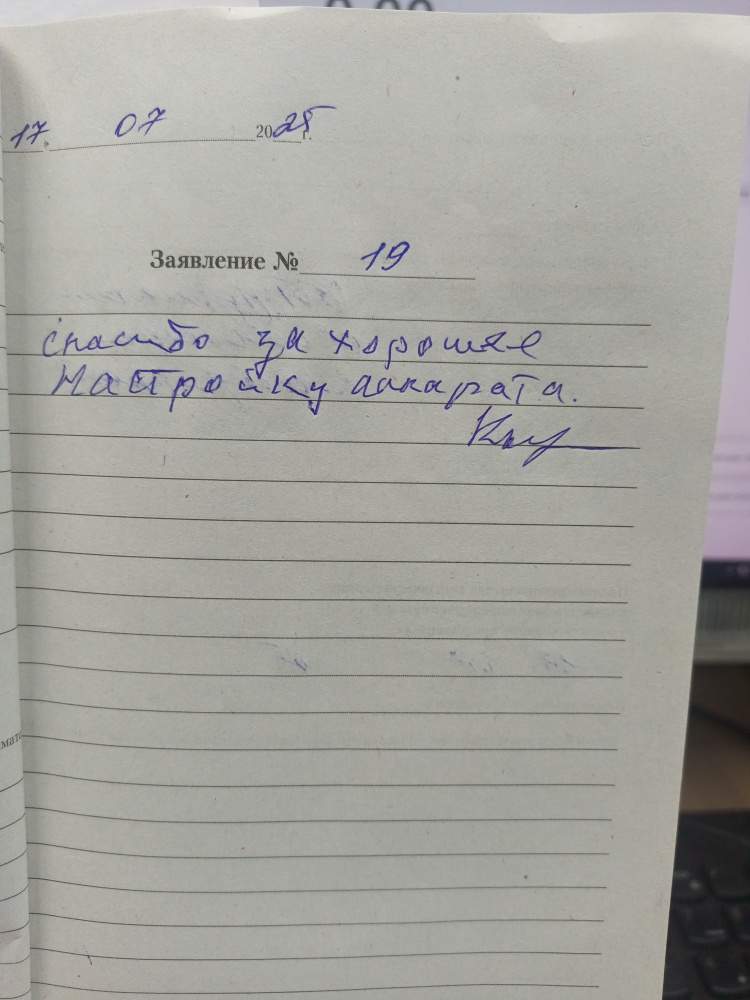 17 07 2025 г.
Заявление № 19
спасибо за хорошее
настройку аппарата.